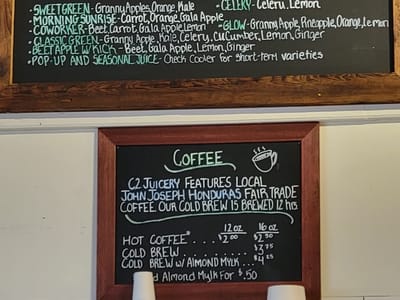 • SWEETGREEN - Granny Apples, Orange, Kale
• CELERY - Celery, Lemon
• MORNING SUNRISE - Carrot, Orange, Gala Apple
• COWORKER - Beet, Carrot, Gala Apple, Lemon
• GLOW - Granny Apple, Pineapple, Orange, Lemon
• CLASSIC GREEN - Granny Apple, Kale, Celery, Cucumber, Lemon, Ginger
BEET APPLE W/ KICK - Beet, Gala Apple, Lemon, Ginger
• POP-UP AND SEASONAL JUICE - Check Cooler For Short-term varieties
COFFEE
C2 JUICERY FEATURES LOCAL
JOHN JOSEPH HONDURAS FAIR TRADE
COFFEE. OUR COLD BREW IS BREWED 12 hrs
12 oz 16 oz
HOT COFFEE* . . . . $2.00 $2.50
COLD BREW . . . . $3.75
COLD BREW W/ ALMOND MYLK . . . $4.25
Almond Mylk For $.50